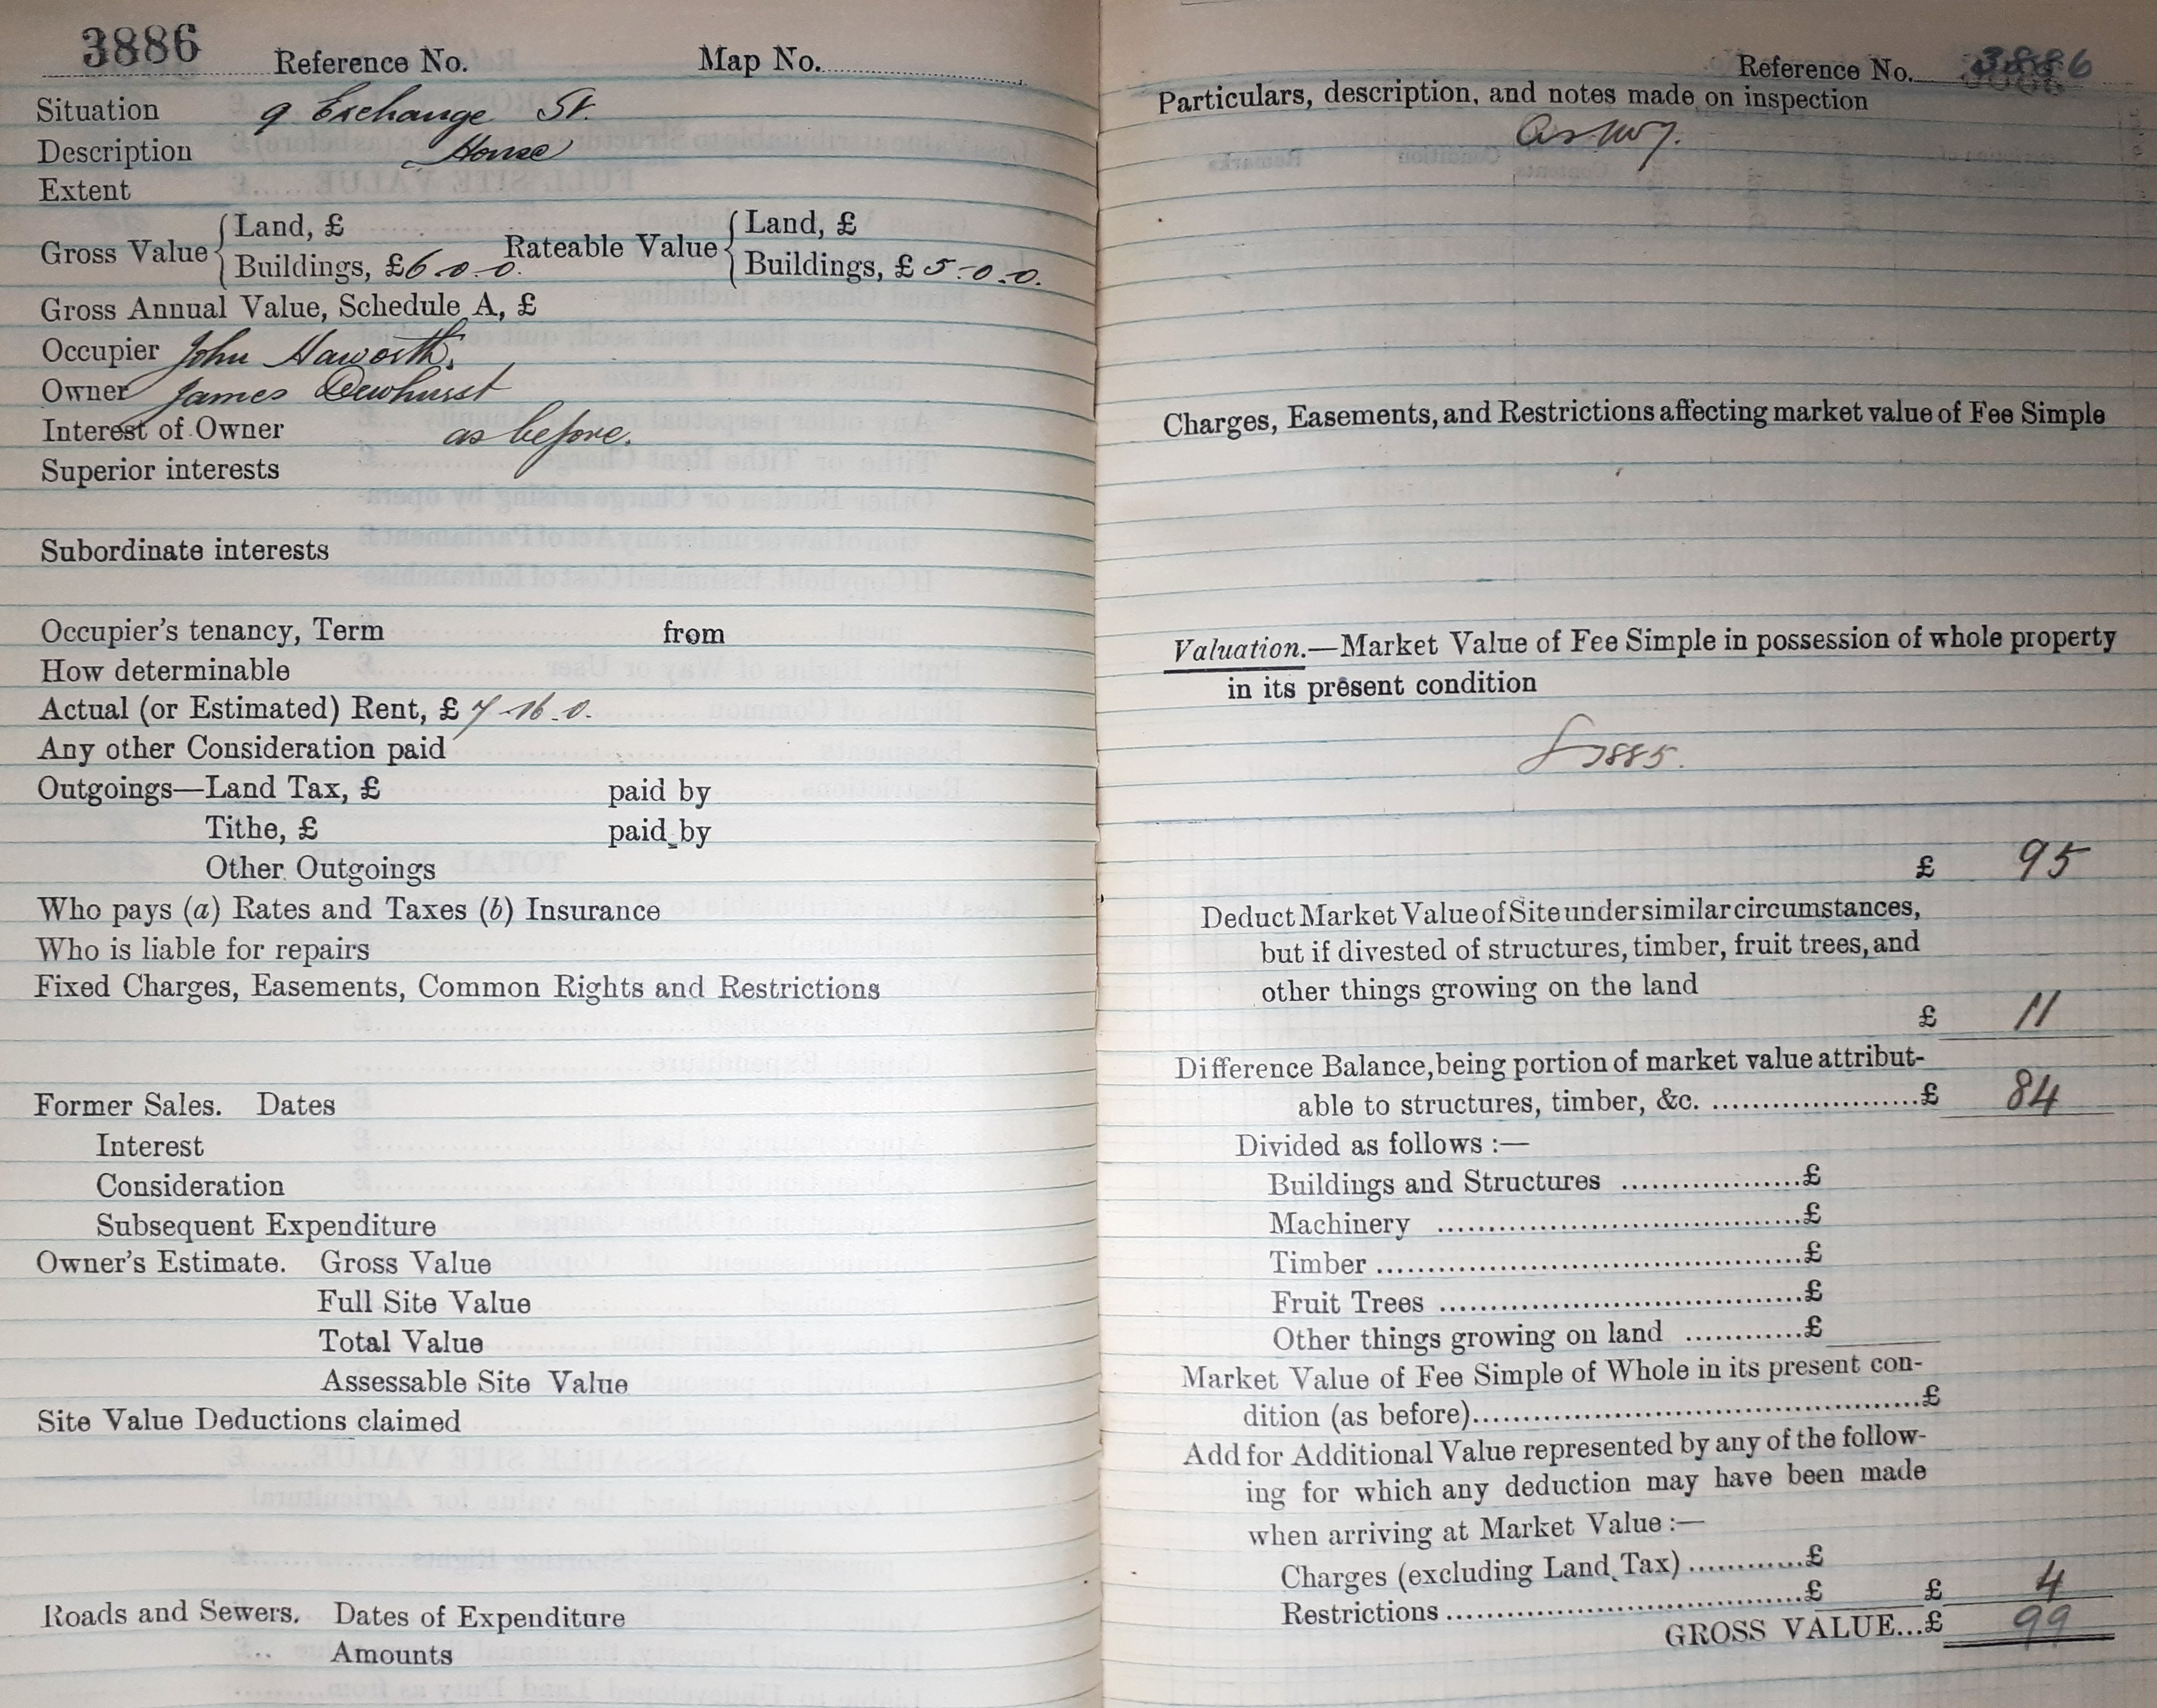 3886 Reference No. Map No.
Situation 9 Exchange St.
Description House
Extent
Gross Value { Land, £ Rateable Value { Land, £
Buildings, £ 6-0-0. Buildings, £ 5-0-0.
Gross Annual Value, Schedule A, £
Occupier John Haworth.
Owner James Dewhurst
Interest of Owner as before.
Superior interests
Subordinate interests
Occupier's tenancy, Term from
How determinable
Actual (or Estimated) Rent, £ 7-16-0.
Any other Consideration paid
Outgoings—Land Tax, £ paid by
Tithe, £ paid by
Other Outgoings
Who pays (a) Rates and Taxes (b) Insurance
Who is liable for repairs
Fixed Charges, Easements, Common Rights and Restrictions
Former Sales. Dates
Interest
Consideration
Subsequent Expenditure
Owner's Estimate. Gross Value
Full Site Value
Total Value
Assessable Site Value
Site Value Deductions claimed
Roads and Sewers. Dates of Expenditure
Amounts
Reference No. 3886
Particulars, description, and notes made on inspection
Charges, Easements, and Restrictions affecting market value of Fee Simple
Valuation.—Market Value of Fee Simple in possession of whole property
in its present condition
£ 95
Deduct Market Value of Site under similar circumstances,
but if divested of structures, timber, fruit trees, and
other things growing on the land
£ 11
Difference Balance, being portion of market value attribut-
able to structures, timber, &c. ....................£ 84
Divided as follows :—
Buildings and Structures ..................£
Machinery ....................................£
Timber ..........................................£
Fruit Trees ....................................£
Other things growing on land ............£
Market Value of Fee Simple of Whole in its present con-
dition (as before)............................................£
Add for Additional Value represented by any of the follow-
ing for which any deduction may have been made
when arriving at Market Value :—
Charges (excluding Land Tax) ............£
Restrictions ....................................£ £ 4
GROSS VALUE...£ 99